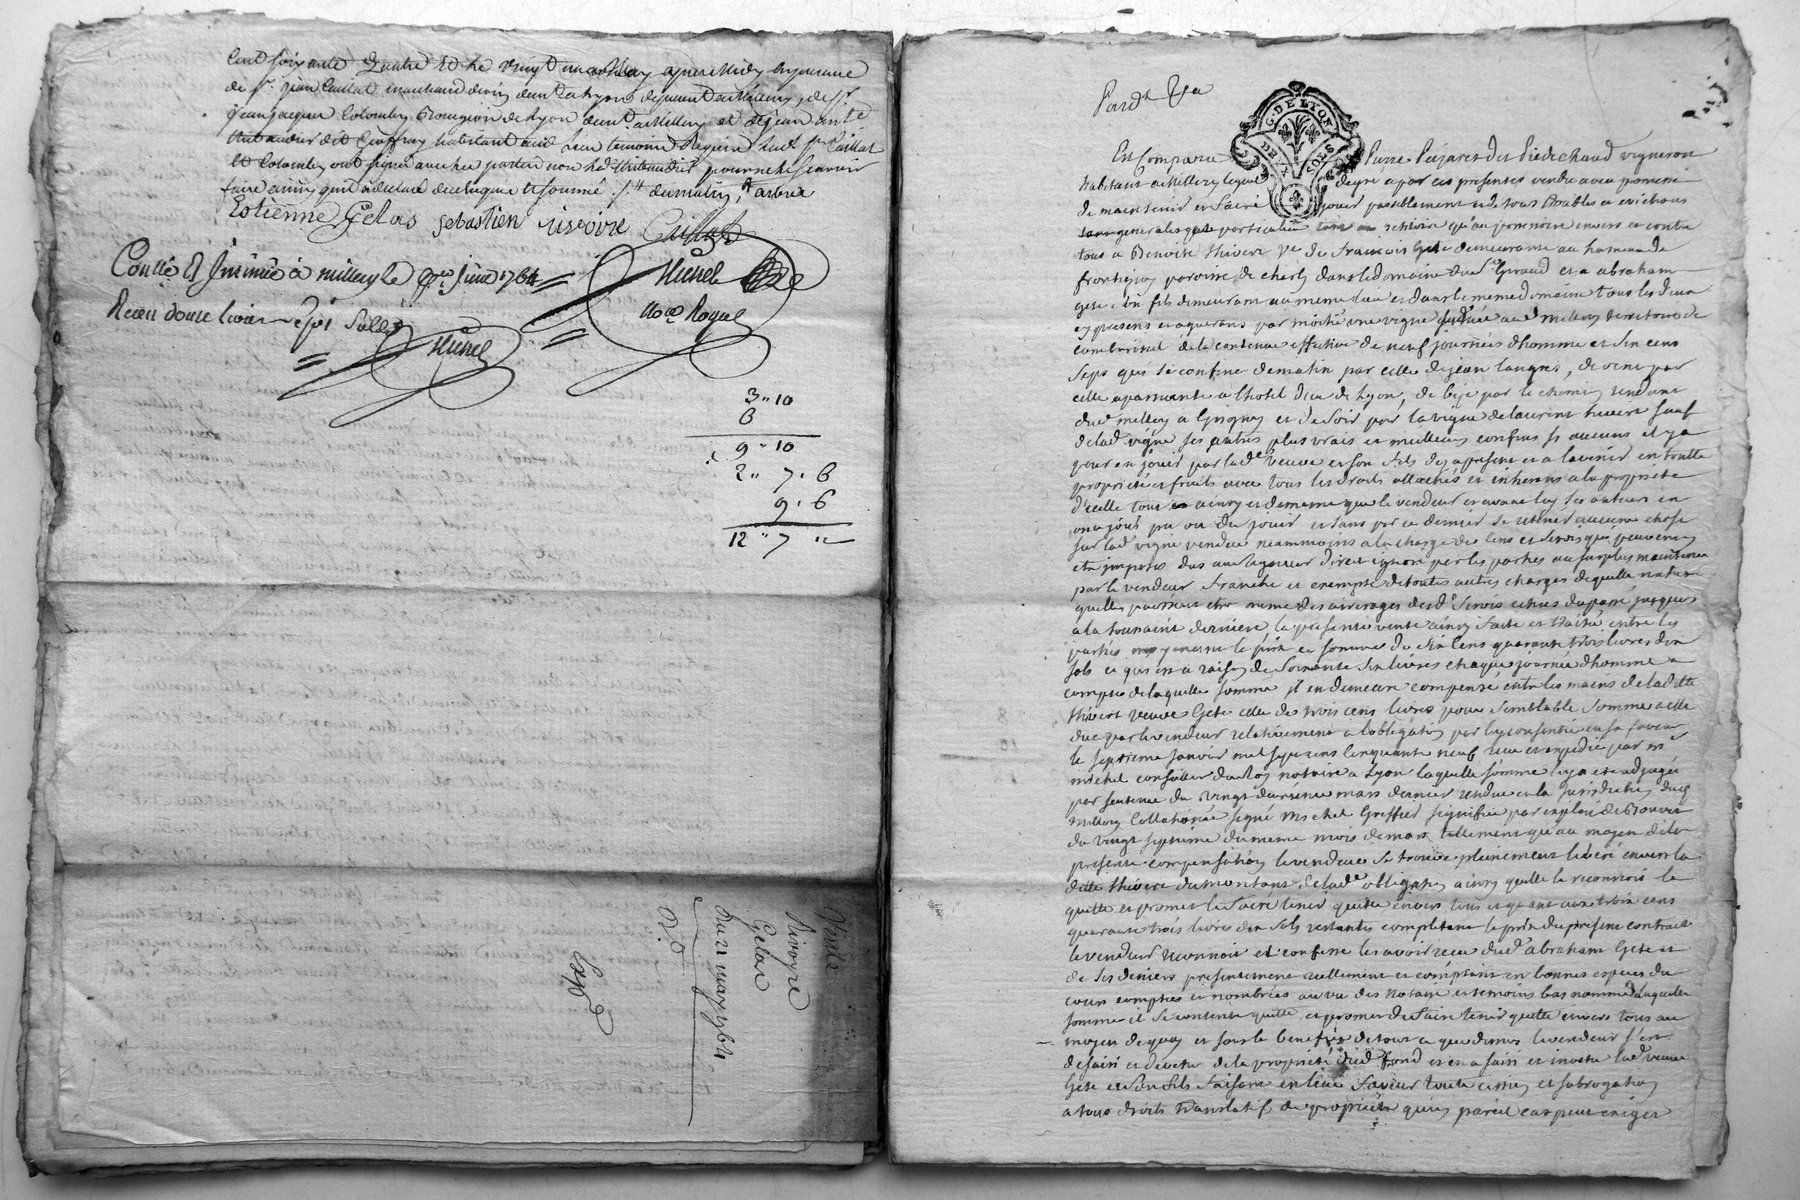 Cent soixante Quatre et le vingt un may apres Midy en presence
de Sr. jean Caillat marchand de vin dem.t a Lyon de present a Millery, de Sr.
jean jacques Colomby Bourgeois de Lyon dem.t a Millery et de jean ante
dit Geoffray habitant aud. Lieu temoins Requis led.
et Colomby ont signé avec les parties non led. pour ne le Scavoir
faire ainsy qu'il a declaré de ce enquis et sommé
Estienne Gelas Sebastien risvoire Caillat
Collé & Insinué à millery le juin 1764
Reçu douze livres sept Sols
Michel
Michel
No.re Royal
3 " 10
6
9 " 10
2 " 7 . 6
9 . 6
12 " 7 "
Vente
Rivoyre
Gelas
Du 21 may 1764
Exp.d
Par dt.
G. DE LYON
DEUX SOLS
Est Comparu Pierre Pitiot dit Piedechaud vigneron
habitant a Millery lequel de gré a par ces presentes vendu avec promesse
de maintenir et faire jouir paisiblement et de tous troubles et evictions
tant generale que particuliere qu'au petitoire envers et contre
tous a Benoite thivert Ve. de francois Gete demeurante au hameau de
frontigny paroisse de cherly dans le domaine du Sr. Giraud et a abraham
gete son fils demeurant au meme lieu et dans le meme domaine tous les deux
cy presens et aquerans par moitié une vigne située aud. millery territoire de
combarinel de la contenue effective de neuf journées d'homme et Six cens
Seps qui Se confine de matin par celle de jean langre, de vent par
celle apartenante a l'hotel dieu de Lyon, de bize par le chemin tendant
dud. millery a Grigny et de Soir par la vigne de laurent thivert sauf
de lad. vigne ses autres plus vrais et meilleurs confins si aucuns il y a
pour en jouir par lad.e veuve et son fils des a present et a l'avenir en toute
propriete et fruits avec tous les droits attachés et inherens a la propriete
d'icelle tout ainsy et de meme que le vendeur et avant luy ses auteurs en
ont joui pu ou du jouir et sans par ce dernier se retenir aucune chose
sur lad. vigne vendue neanmoins a la charge des Cens et Servis qui peuvent
etre imposés dus au Seigneur direct ignoré par les parties au surplus maintenue
par le vendeur franche et exempte de toutes autres charges de quelle nature
qu'elles puissent etre meme des arrerages desd.s Servis echus du passé jusques
a la toussaint derniere la presente vente ainsy faite et traitée entre les
parties moyennant le prix et somme de Six Cens quarante trois livres dix
sols ce qui est a raison de Soixante Six livres chaque journée d'homme a
compte de laquelle somme il en demeure compensé entre les mains de lad.itte
thivert veuve Gete celle de trois cens livres pour semblable somme a elle
due par le vendeur relativement a l'obligation par luy consentie en sa faveur
le septieme janvier mil sept cens cinquante neuf recue et expediée par me.
michel conseiller du Roy notaire a Lyon laquelle somme luy a été adjugée
par sentence du vingt deuxieme mars dernier rendue en la jurisdiction dud.
millery Collationné signé michel Greffier signifiée par exploit de Bouvier
du vingt septieme du meme mois de mars tellement qu'au moyen de la
presente compensation le vendeur se trouve pleinement liberé envers la
ditte thivert du montant de lad.e obligation ainsy qu'elle le reconnoit le
quitte et promet le faire tenir quitte envers tous et quant aux trois cens
quarante trois livres dix sols restantes completant le prix du present contrat
le vendeur reconnoit et confesse les avoir recu dud. abraham Gete et
de ses deniers presentement reellement et comptant en bonnes especes du
cours comptées et nombrées au vu des notaire et temoins bas nommés de laquelle
somme il se contente quitte et promet de faire tenir quitte envers tous au
moyen de quoy et sous le benefice de tout ce que dessus le vendeur s'est
desaisi et devetu de la propriété dud. fond et en a saisi et investu lad. veuve
Gete et son fils faisant en leur faveur toute cession et subrogation
a tous droits translatif de propriété qu'en pareil cas peut exiger